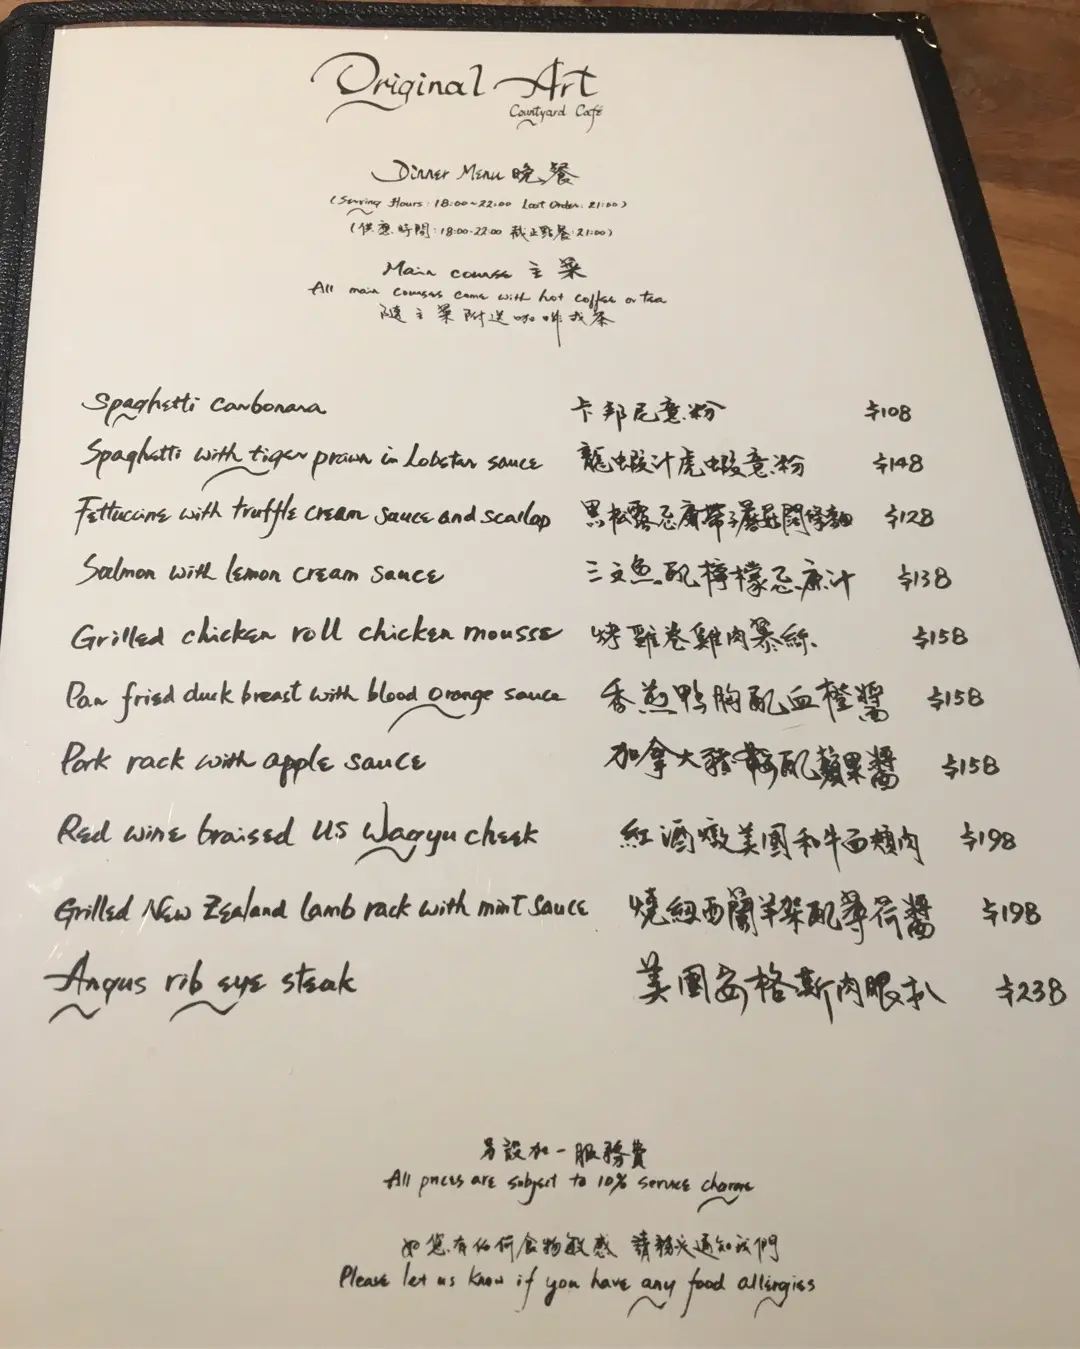 Original Art
Courtyard Café
Dinner Menu 晚餐
(Serving Hours: 18:00~22:00 Last Order: 21:00)
(供應時間:18:00-22:00 截止點餐:21:00)
Main course 主菜
All main courses come with hot coffee or tea
隨主菜附送咖啡或茶
Spaghetti carbonara 卡邦尼意粉 $108
Spaghetti with tiger prawn in lobster sauce 龍蝦汁虎蝦意粉 $148
Fettuccine with truffle cream sauce and scallop 黑松露忌廉帶子蘑菇闊條麵 $128
Salmon with lemon cream sauce 三文魚配檸檬忌廉汁 $138
Grilled chicken roll chicken mousse 烤雞卷雞肉慕絲 $158
Pan fried duck breast with blood orange sauce 香煎鴨胸配血橙醬 $158
Pork rack with apple sauce 加拿大豬鞍配蘋果醬 $158
Red wine braised US Wagyu cheek 紅酒燉美國和牛面頰肉 $198
Grilled New Zealand lamb rack with mint sauce 燒紐西蘭羊架配薄荷醬 $198
Angus rib eye steak 美國安格斯肉眼扒 $238
另設加一服務費
All prices are subject to 10% service charge
如您有任何食物敏感 請務必通知我們
Please let us know if you have any food allergies